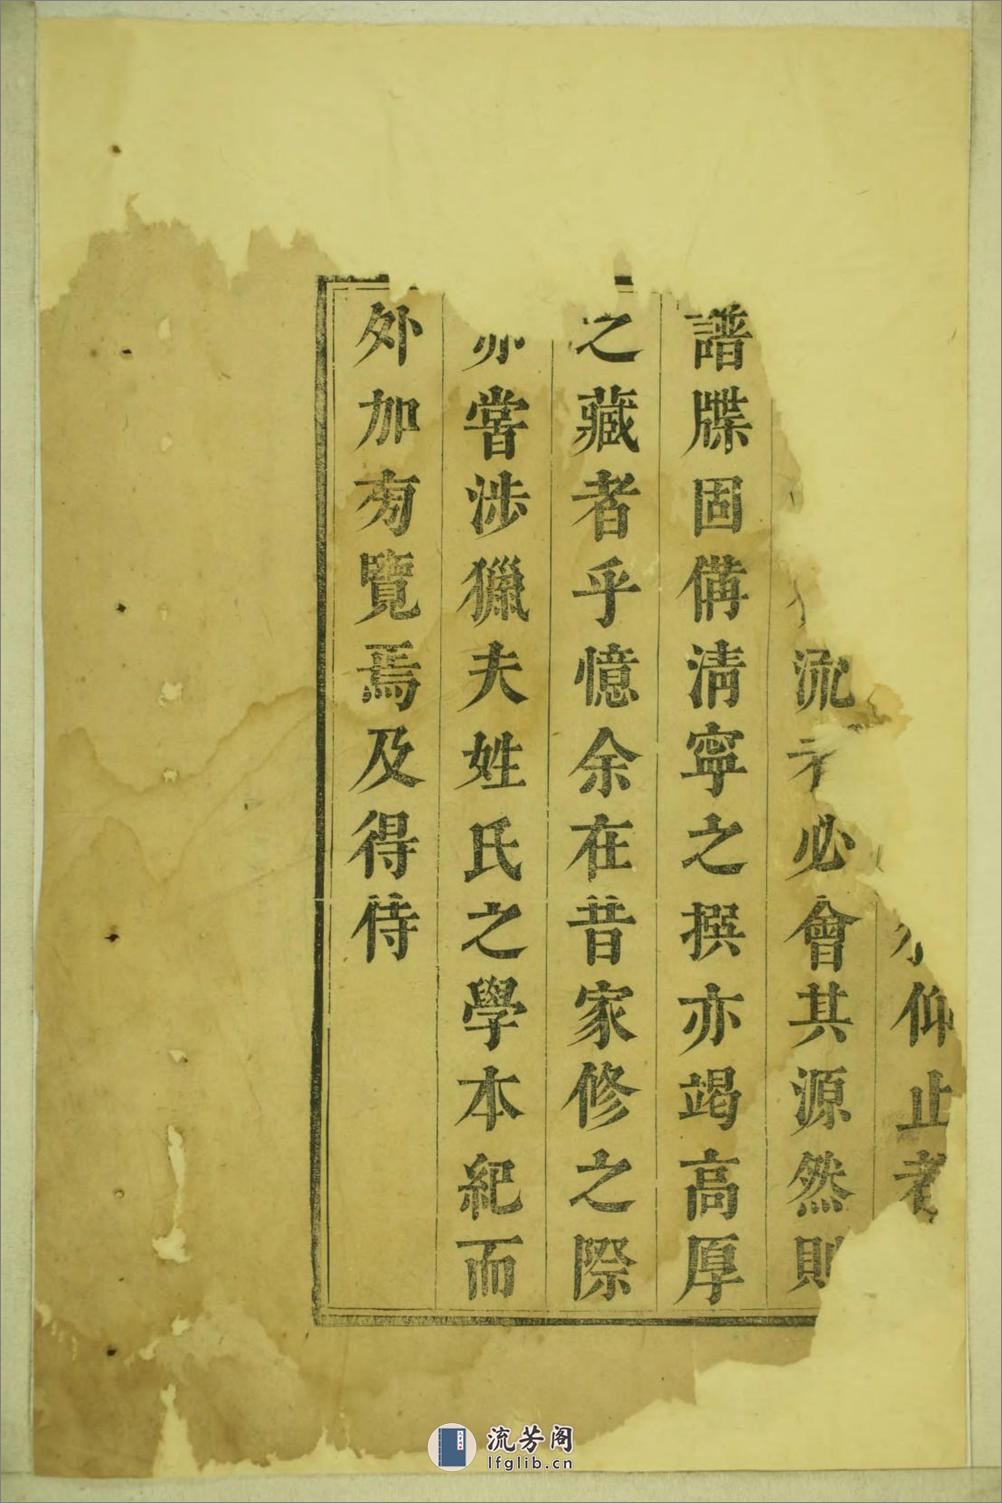 仰止者
流者必會其源然則
譜牒固備清寧之撰亦竭高厚
之藏者乎憶余在昔家修之際
亦嘗涉獵夫姓氏之學本紀而
外加有覽焉及得侍
流芳阁
lfglib.cn